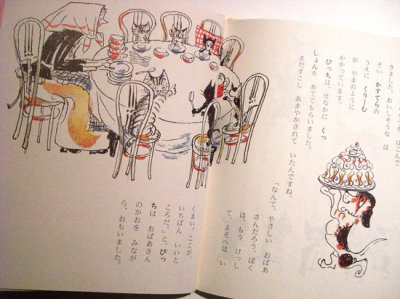 はこんで
きました。おいしそうな
かすてらの
うえに くりーむ
が やまのように
かかっています。
ぴっちは、せなかに くっ
しょんを あててもらいました。
まだすこし あまやかされて いたんですね。
「なんて、やさしい おばあ
さんだろう。ぼく
は、もう けっし
て、よそへは い
くまい。ここが、
いちばん いいと
ころだ。」と、ぴっ
ちは おばあさん
のかおを みなが
ら、おもいました。